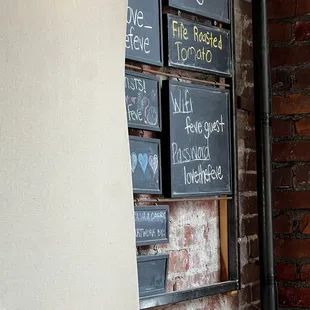 love_
@feve
Fire Roasted
Tomato
Feve!
Wifi
feve guest
Password
lovethefeve
ARTWORK BY: